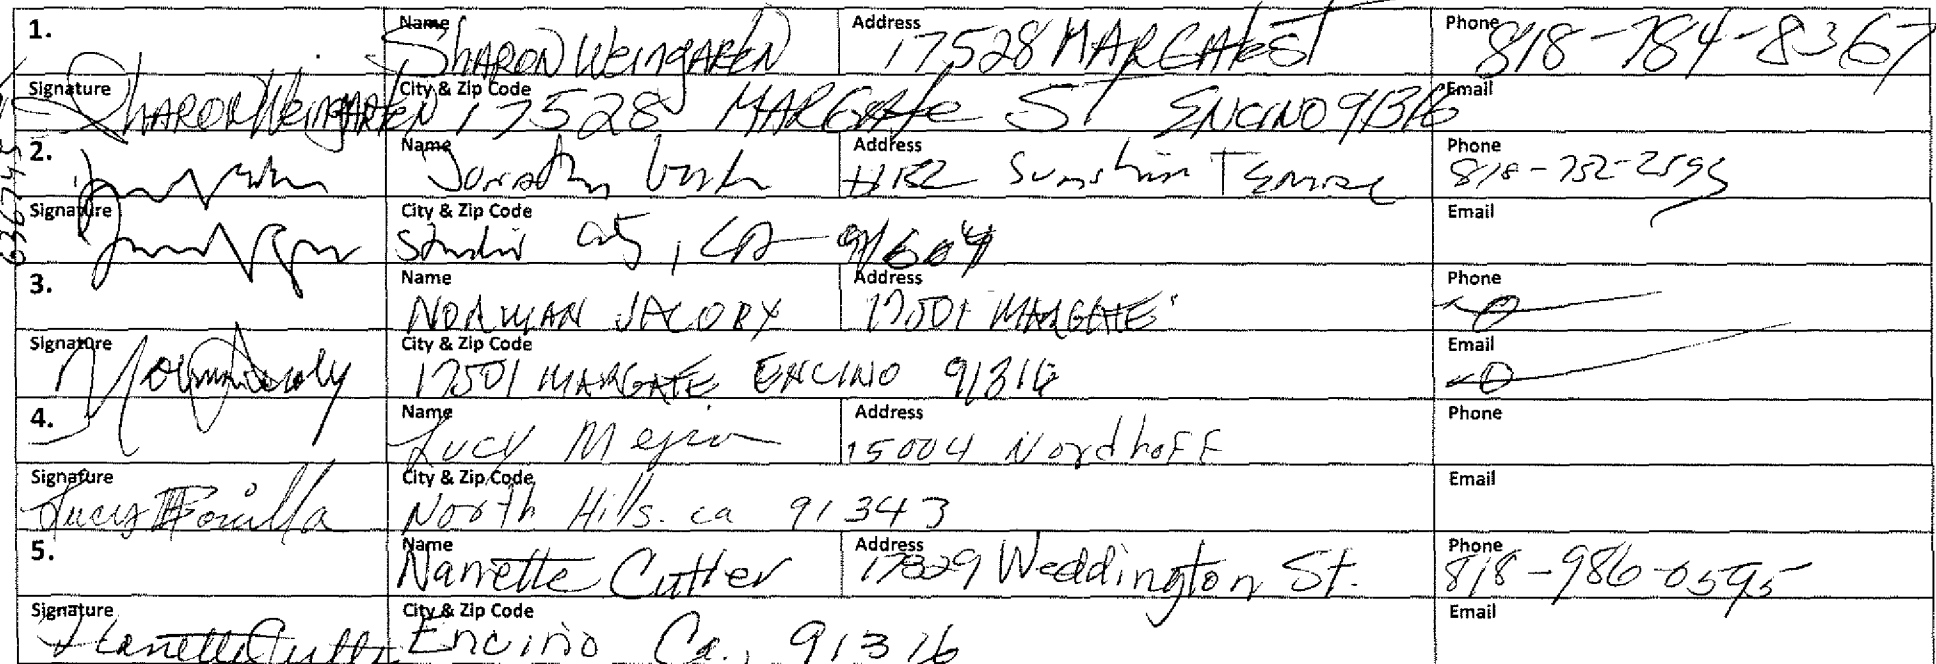 1. Name SHARON WEINGARTEN Address 17528 MARGATE ST Phone 818-784-8367
Signature SHARON WEINGARTEN City & Zip Code 17528 MARGATE ST ENCINO 91316 Email
2. Name Address Sunshine Terrace Phone 818-752-2595
Signature City & Zip Code Studio City, CA 91604 Email
3. Name NORMAN JACOBY Address 17501 MARGATE Phone
Signature City & Zip Code 17501 MARGATE ENCINO 91316 Email
4. Name Lucy Mejia Address 15004 Nordhoff Phone
Signature Lucy Bonilla City & Zip Code North Hills. ca 91343 Email
5. Name Nanette Cutler Address 17829 Weddington St. Phone 818-986-0595
Signature Nanette Cutler City & Zip Code Encino Ca., 91316 Email